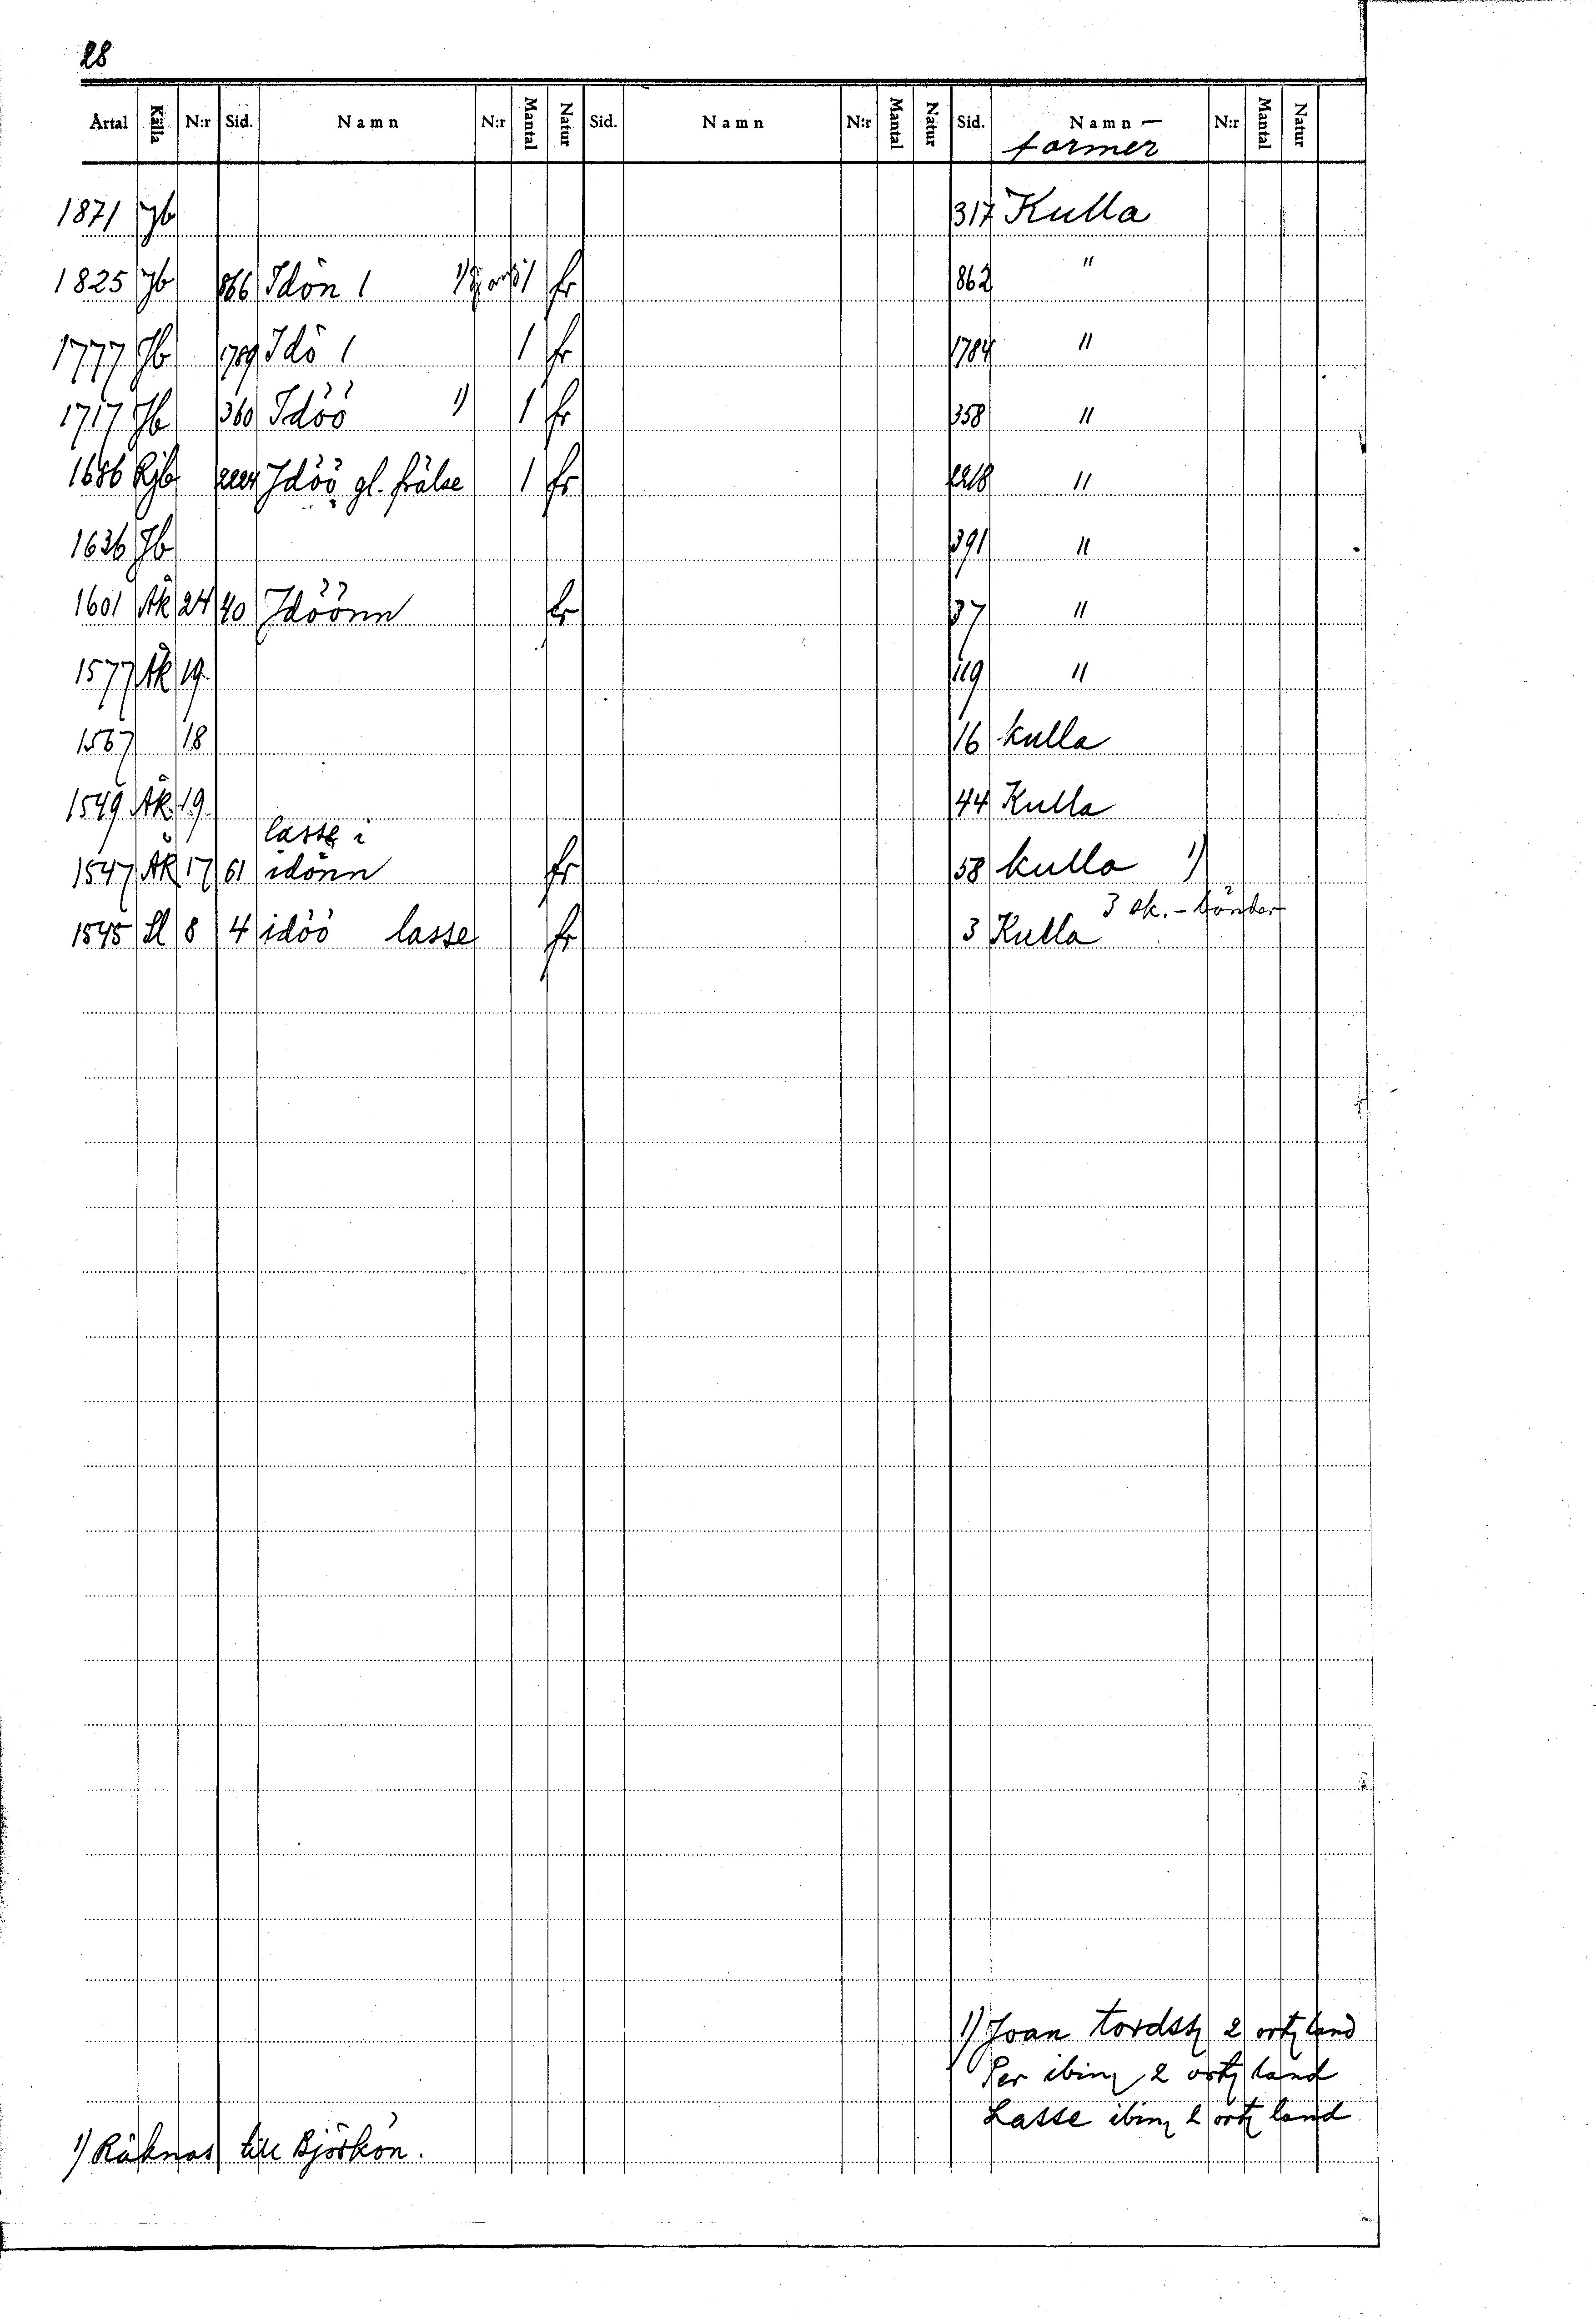 28
Årtal Källa N:r Sid. Namn N:r Mantal Natur Sid. Namn N:r Mantal Natur Sid. Namn— N:r Mantal Natur
former
1871 Jb 317 Kulla
1825 Jb 866 Idön 1 1) 1 fr 862 "
1777 Jb 1789 Idö 1 1 fr 1784 "
1717 Jb 360 Idöö 1) 1 fr 358 "
1686 Rjb 2224 Idöö gl. frälse 1 fr 2218 "
1636 Jb 391 "
1601 ÄK 24 40 Idöönn fr 37 "
1577 ÄK 19 119 "
1567 18 16 kulla
1549 ÄK 19 44 Kulla
lasse i
1547 ÄK 17 61 idönn fr 58 kulla 1)
3 sk.-bönder
1545 Sl 8 4 idöö lasse fr 3 Kulla
1) Joan tordss 2 land
Per 2 land
Lasse 2 land
1) Räknas till Björkön.